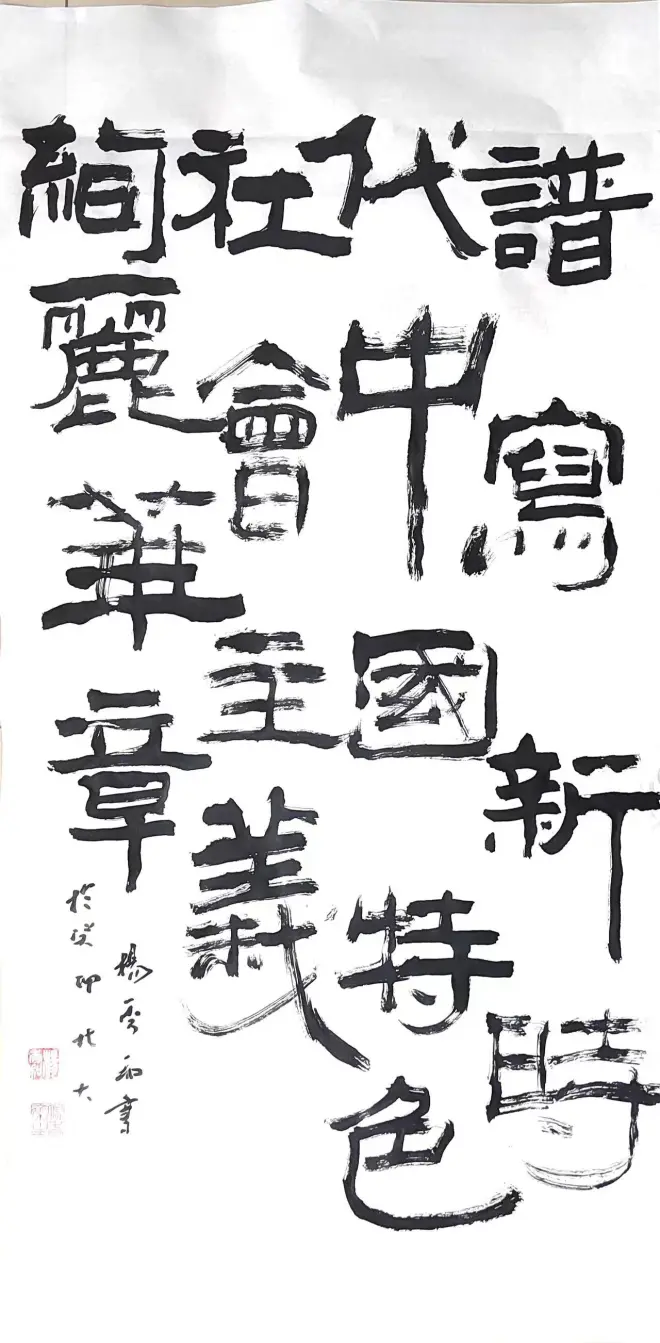 譜寫新時
代中國特色
社會主義
絢麗華章
楊雲和書
於癸卯北大